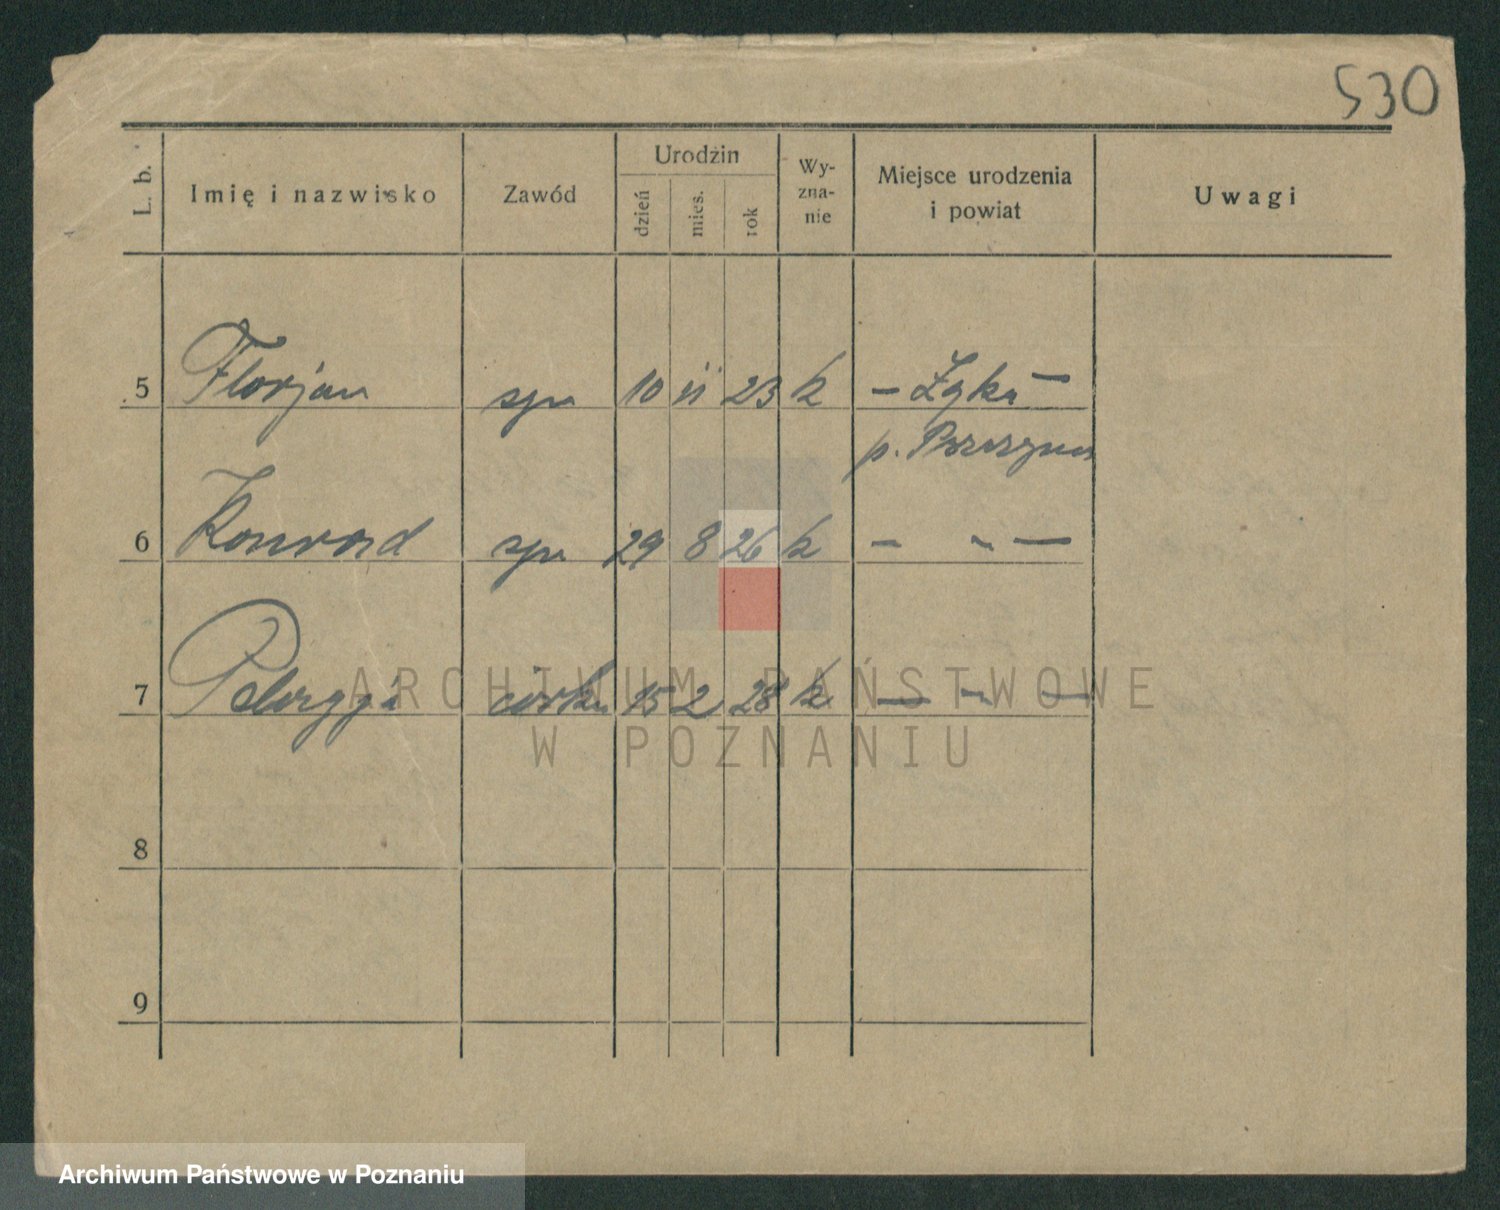 530
L. b.
Imię i nazwisko
Zawód
Urodzin
dzień
mies.
rok
Wy-
zna-
nie
Miejsce urodzenia
i powiat
Uwagi
5 Florjan syn 10 11 23 k – Łąka –
p. Pszczyna
6 Konrad syn 29 8 26 k – „ –
7 Pelagja córka 15 2 28 k – „ –
8
9
ARCHIWUM PAŃSTWOWE
W POZNANIU
Archiwum Państwowe w Poznaniu